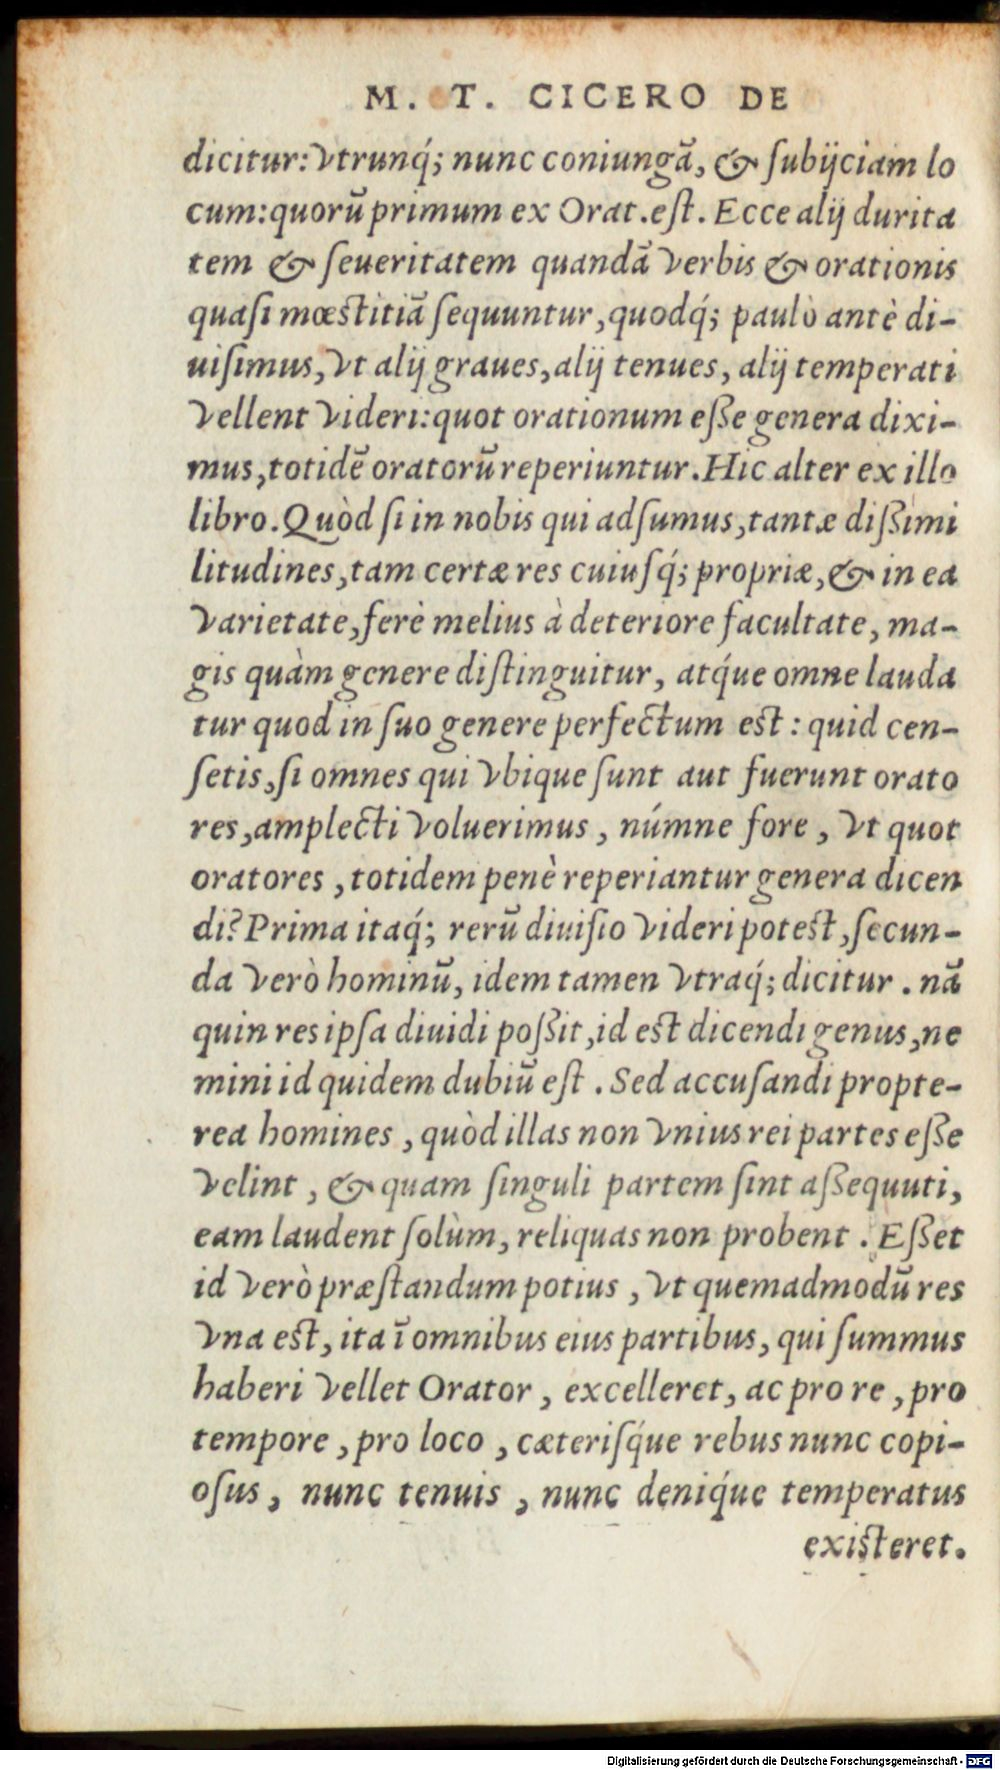 M. T. CICERO DE
dicitur: vtrunq́; nunc coniungā, & ſubijciam lo
cum: quorū primum ex Orat. eſt. Ecce alij durita
tem & ſeueritatem quandā verbis & orationis
quaſi mœſtitiā ſequuntur, quodq́; paulò antè di-
uiſimus, vt alij graues, alij tenues, alij temperati
vellent videri: quot orationum eſſe genera dixi-
mus, totidē oratorū reperiuntur. Hic alter ex illo
libro. Quòd ſi in nobis qui adſumus, tantæ diſſimi
litudines, tam certæ res cuiuſq́; propriæ, & in ea
varietate, ferè melius à deteriore facultate, ma-
gis quàm genere diſtinguitur, atq́ue omne lauda
tur quod in ſuo genere perfectum eſt: quid cen-
ſetis, ſi omnes qui vbique ſunt aut fuerunt orato
res, amplecti voluerimus, númne fore, vt quot
oratores, totidem penè reperiantur genera dicen
di? Prima itaq́; rerū diuiſio videri poteſt, ſecun-
da verò hominū, idem tamen vtraq́; dicitur. nā
quin res ipſa diuidi poſſit, id eſt dicendi genus, ne
mini id quidem dubiū eſt. Sed accuſandi propte-
rea homines, quòd illas non vnius rei partes eſſe
velint, & quam ſinguli partem ſint aſſequuti,
eam laudent ſolùm, reliquas non probent. Eſſet
id verò præſtandum potius, vt quemadmodū res
vna eſt, ita ī omnibus eius partibus, qui ſummus
haberi vellet Orator, excelleret, ac pro re, pro
tempore, pro loco, cæteriſq́ue rebus nunc copi-
oſus, nunc tenuis, nunc deniq́ue temperatus
exiſteret.
Digitalisierung gefördert durch die Deutsche Forschungsgemeinschaft - DFG